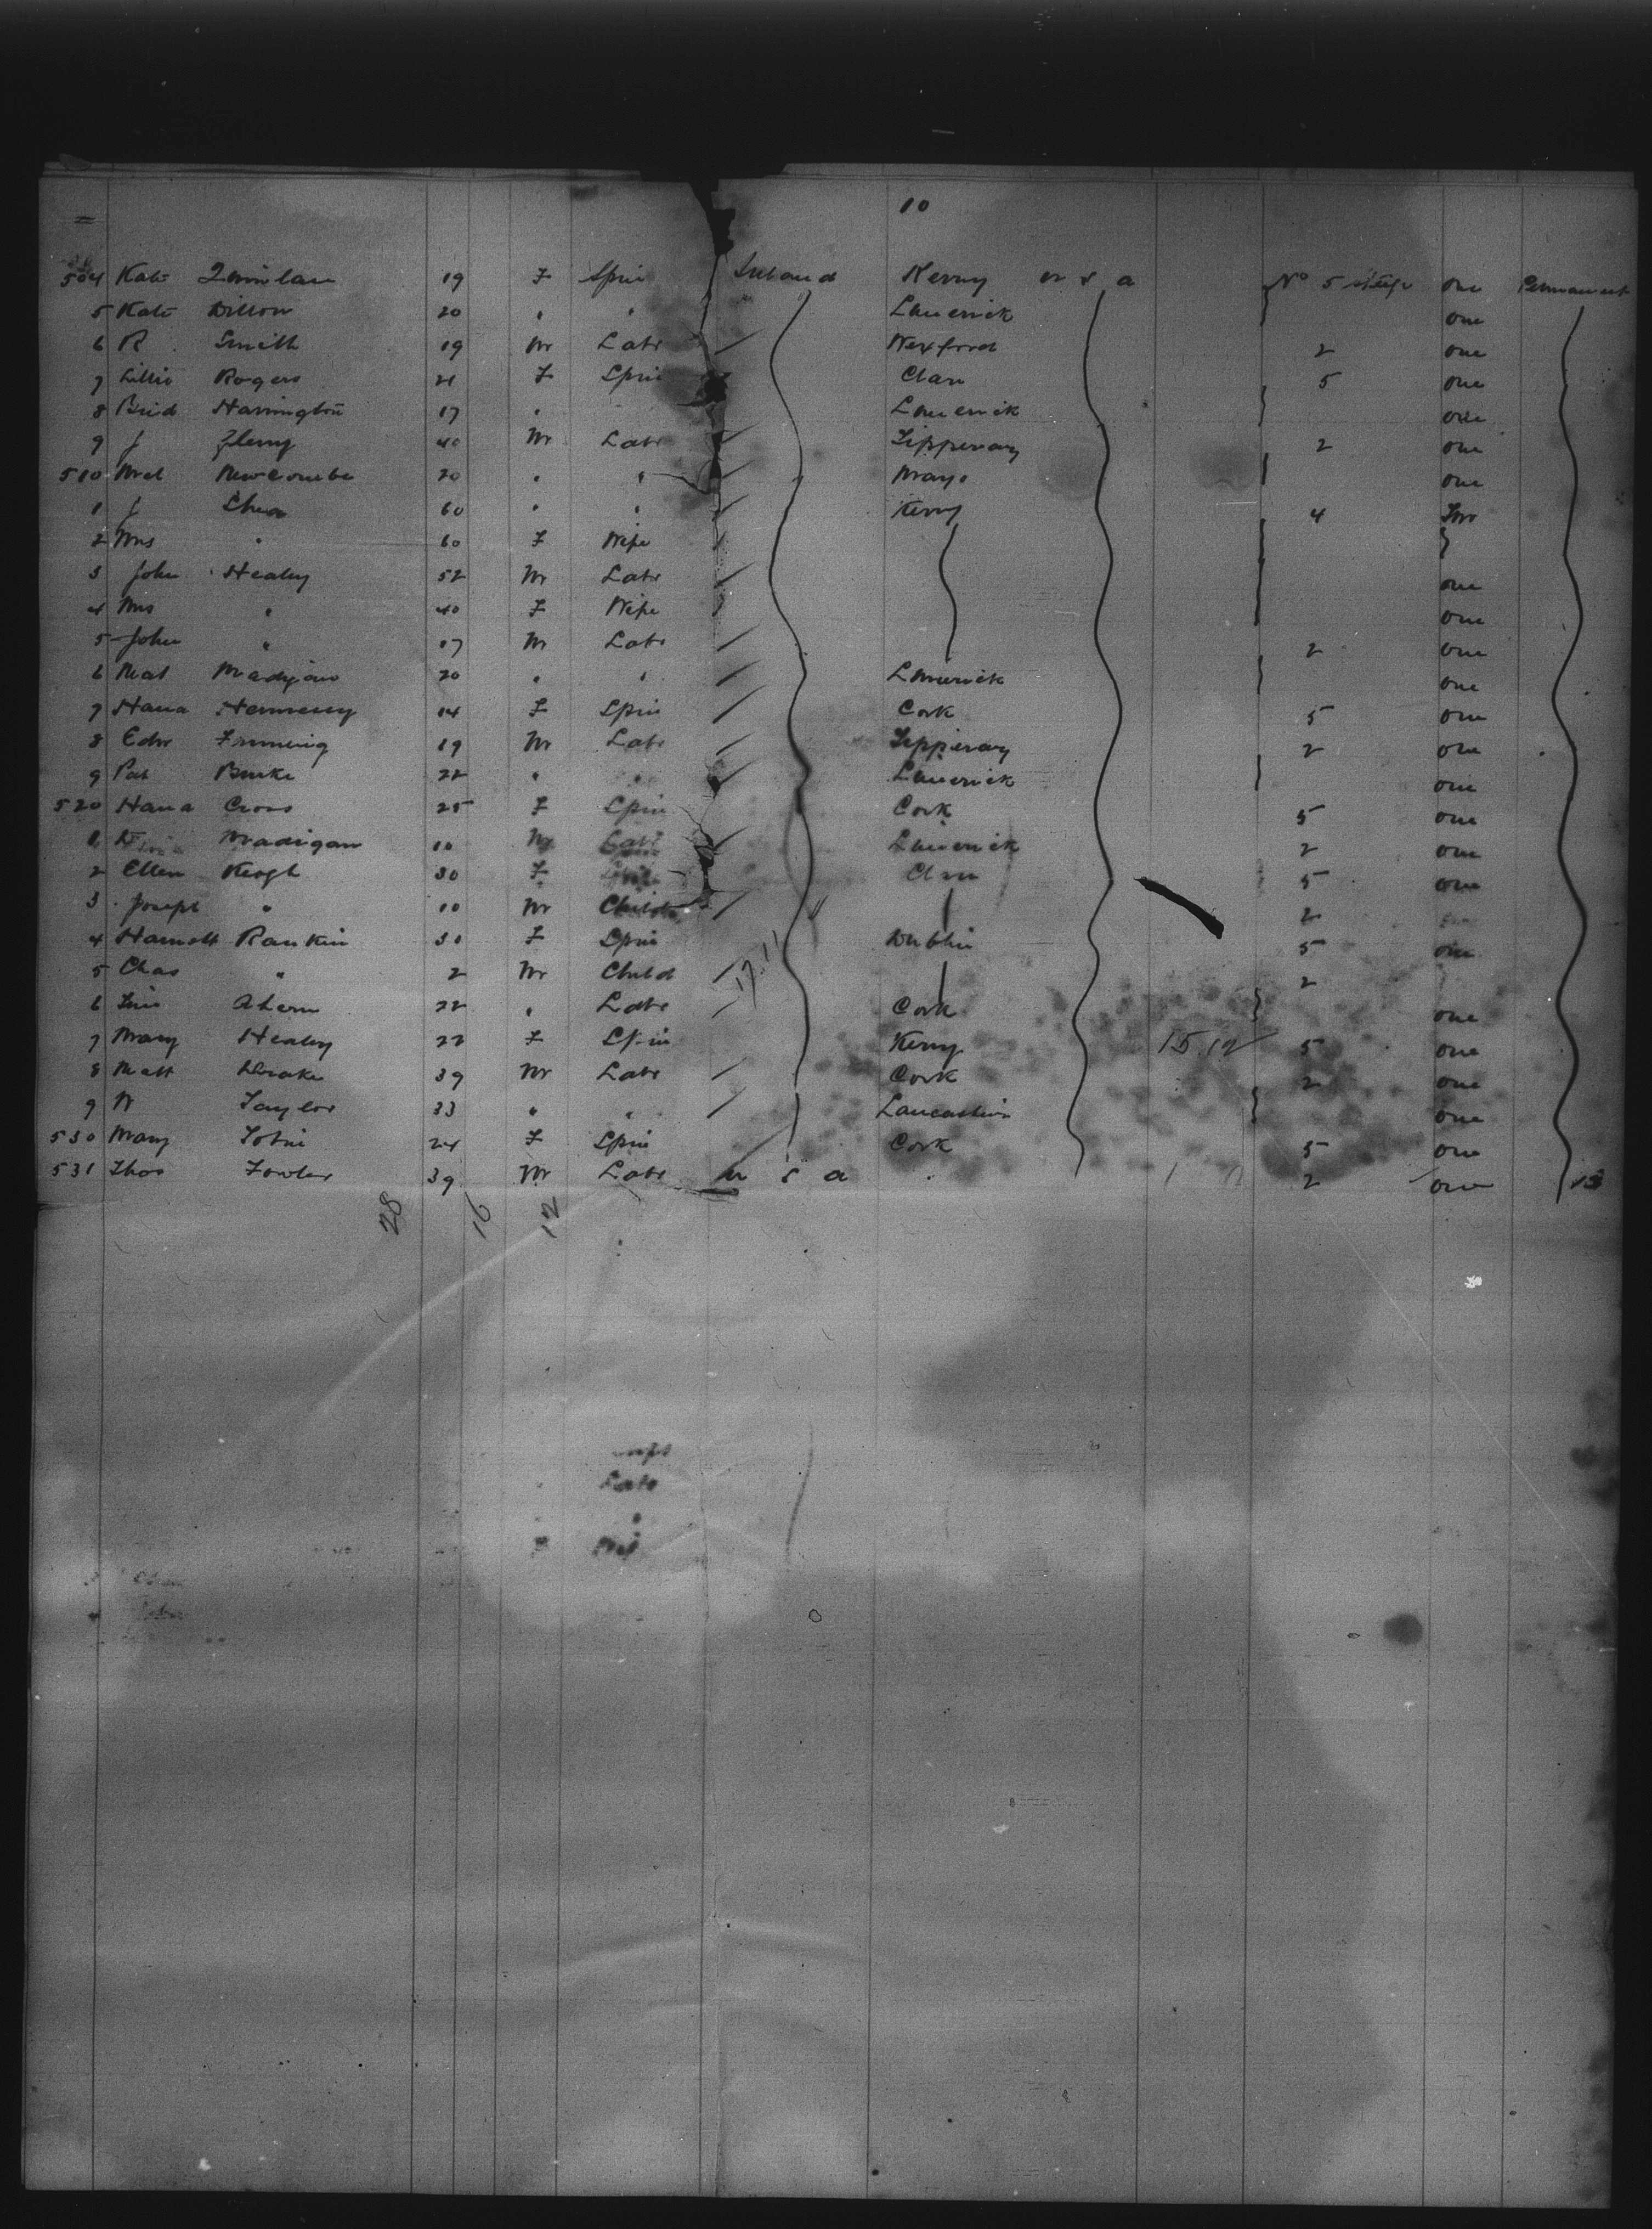 10
504 Kate Quinlan 19 F Spin Ireland Kerry U S A No 5 Stege one Permanent
5 Kate Dillon 20 " " Limerick one
6 R Smith 19 M Labr Wexford 2 one
7 Lillie Rogers 21 F Spin Clare 5 one
8 Brid Harrington 17 " Limerick one
9 J Fleury 40 M Labr Tipperary 2 one
510 Mcl Newcombe 20 " " Mayo one
1 J Shea 60 " " Kerry 4 Two
2 Mrs " 60 F Wife
3 John Healey 52 M Labr one
4 Mrs " 40 F Wife one
5 John " 17 M Labr 2 one
6 Mat Madigan 20 " " Limerick one
7 Hana Hennessy 14 F Spin Cork 5 one
8 Edw 19 M Labr Tipperary 2 one
9 Pat Burke 22 " " Limerick one
520 Hana Cross 25 F Spin Cork 5 one
1 Madigan 10 M Labr Limerick 2 one
2 Ellen Keogh 30 F Clare 5 one
3 Joseph " 10 M Child 2
4 Rankin 30 F Spin Dublin 5 one
5 Chas " 2 M Child 17.11 2
6 Ahern 22 " Labr Cork one
7 Mary Healey 22 F Spin Kerry 15 12 5 one
8 Matt Drake 39 M Labr Cork 2 one
9 W Taylor 33 " " Lancashire one
530 Mary Tobin 24 F Spin Cork 5 one
531 Thos Fowler 39 M Labr U S A 2 one 13
28 16 12
Labr